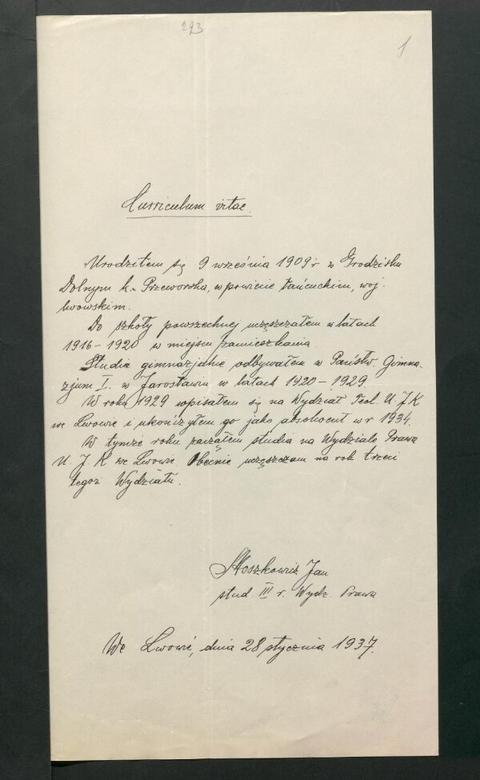 293
1
Curriculum vitae
Urodziłem się 9 września 1909 r w Grodzisku
Dolnym k. Przeworska, w powiecie łańcuckim, woj.
lwowskim.
Do szkoły powszechnej uczęszczałem w latach
1916-1920 w miejscu zamieszkania
Studia gimnazjalne odbywałem w Państw. Gimna-
zjum I. w Jarosławiu w latach 1920-1929
W roku 1929 wpisałem się na Wydział Teol U J K
we Lwowie i ukończyłem go jako absolwent w r 1934.
W tymże roku zacząłem studia na Wydziale Prawa
U J K we Lwowie Obecnie uczęszczam na rok trzeci
tegoż Wydziału.
Moszkowicz Jan
stud III r. Wydz Prawa
We Lwowie, dnia 28 stycznia 1937.